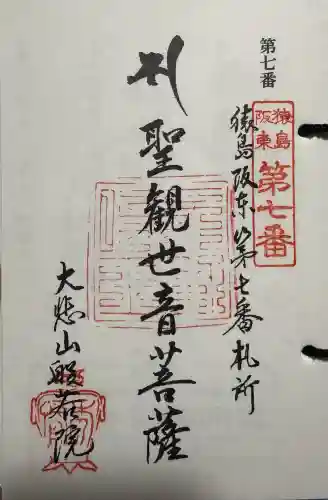 第七番
猿島
阪東
第七番
猿島阪東第七番札所
聖觀世音菩薩
大悲山般若院